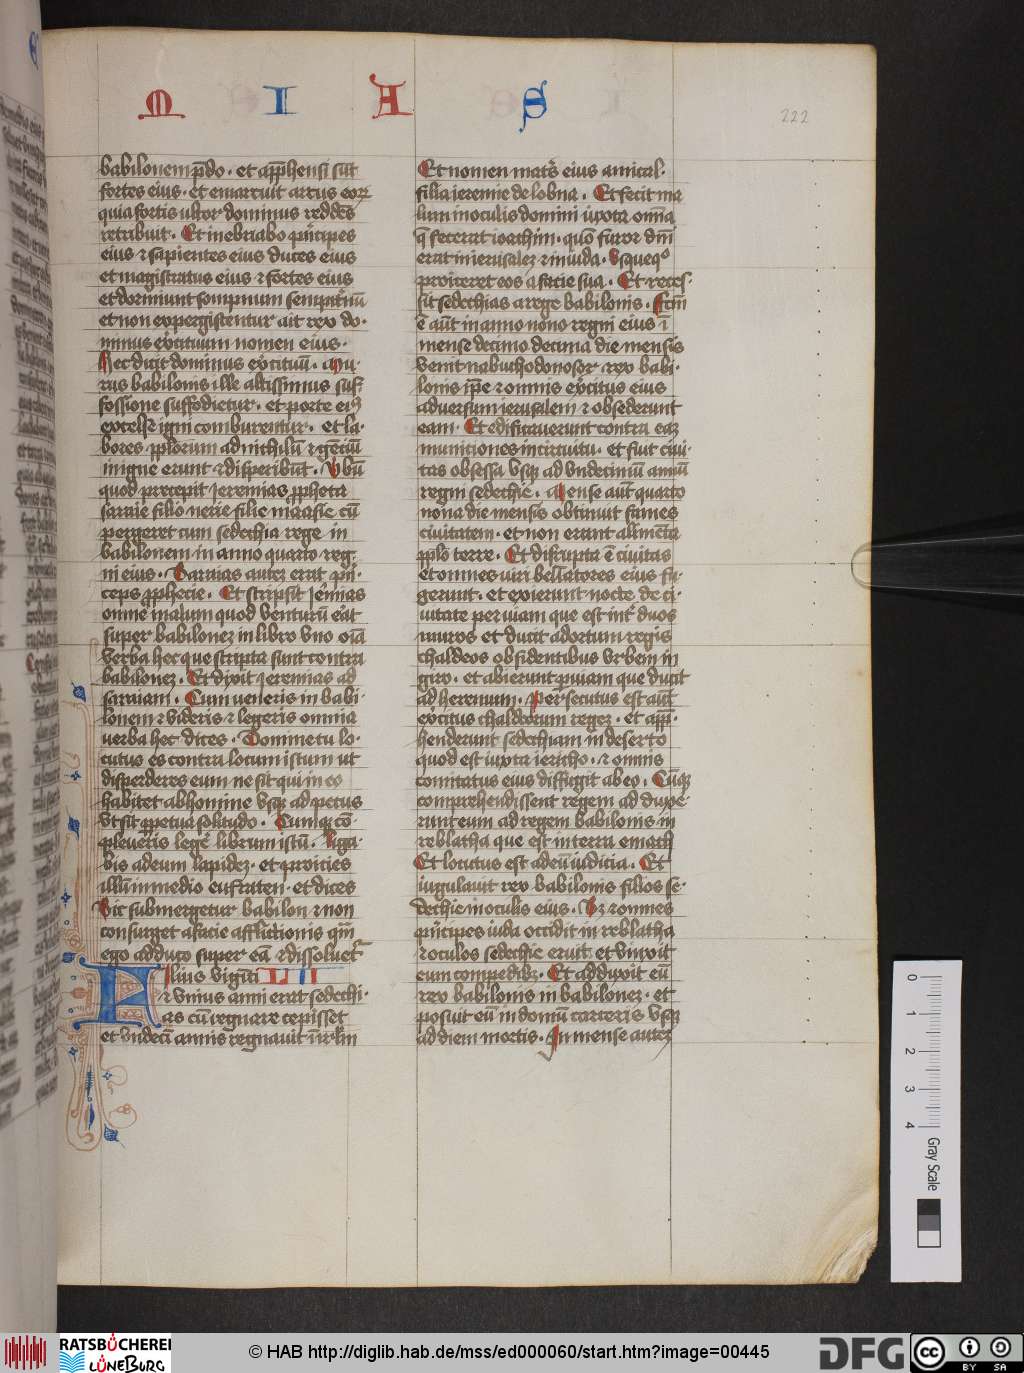 M I A S
222
babilonem p̄do · et app̄hensi sūt
fortes eius · et emarcuit arcus eoꝝ
quia fortis ultor dominus reddēs
retribuit · Et inebriabo p̓ncipes
eius ⁊ sapientes eius duces eius
et magistratus eius ⁊ fortes eius
et dormiunt sompnum sempit̓nū
et non expergistentur ait rex do·
minus ex̓cituum nomen eius ·
Hec dicit dominus ex̓cituū · Mu·
rus babilonis ille altissimus suf·
fossione suffodietur · et porte eiꝰ
excelse igni comburentur · et la·
bores pplorum ad nichilū ⁊ gēciū
in igne erunt ⁊ disperibūt · Verbū
quod precepit Jeremias ꝓpheta
saraie filio nerie filie maasie cū
pergeret cum sedechia rege in
babilonem in anno quarto reg·
ni eius · Saraias autē erat p̓n·
ceps ꝓphecie · Et scripsit Jēmias
omne malum quod venturū erat
super babilonē in libro vno oīa
verba hec que scripta sunt contra
babilonē · Et dixit Jeremias ad
saraiam · Cum veneris in babi·
lonem ⁊ videris ⁊ legeris omnia
verba hec dices · Domine tu lo·
cutus es contra locum istum ut
disperderes eum ne sit qui in eo
habitet ab homine vsqꝫ ad pecus
vt sit ꝑpetua solitudo · Cumqꝫ cō
pleueris lege̓ librum istū · liga·
bis ad eum lapidē · et proicies
illū in medio eufraten · et dices
Sic submergetur babilon ⁊ non
consurget a facie afflictionis quā
ego adduco super eā ⁊ dissoluet̓
Filius viginti LII
⁊ vnius anni erat sedechi·
as cū regnare cepisset
et vndecī annis regnauit ī irl̄m
Et nomen mat̓s eius amical·
filia ieremie de lobna · Et fecit ma
lum in oculis domini iuxta omīa
q̄ fecerat ioachim · quō furor dn̄i
erat in ierusalē ⁊ in iuda · Vsquequo
proiceret eos a facie sua · Et reces·
sit sedechias a rege babilonis · Fc̄m
ē aūt in anno nono regni eius ī
mense decimo decima die mensis
venit nabuchodonosor rex babi·
lonis ip̄e ⁊ omnis ex̓citus eius
aduersum ierusalem ⁊ obsederunt
eam · Et edificauerunt contra eā
municiones in circuitu · et fuit ciui·
tas obsessa vsqꝫ ad vndecimū annū
regni sedechie · Mense aūt quarto
nona die mensis obtinuit fames
ciuitatem · et non erant alimēta
ppl̄o terre · Et disrupta ē ciuitas
et omnes uiri bellatores eius fu·
gerunt · et exierunt nocte de ci·
uitate per uiam que est int̓ duos
muros et ducit ad ortum regis
chaldeos obsidentibus vrbem in
giro · et abierunt ꝑ uiam que ducit
ad heremum · Persecutus est aūt
ex̓citus chaldeorum regē · et app̄·
henderunt sedechiam in deserto
quod est iuxta iericho · ⁊ omnis
comitatus eius diffugit ab eo · Cūqꝫ
comprehendissent regem adduxe·
runt eum ad regem babilonis in
reblatha que est in terra emath
Et locutus est ad eū iudicia · Et
iugulauit rex babilonis filios se·
dechie in oculis eius · Sꝫ ⁊ omnes
p̓ncipes iuda occidit in reblatha
⁊ oculos sedechie eruit et vinxit
eum compedibꝫ · Et adduxit eū
rex babilonis in babilonē · et
posuit eū in domū carceris vsqꝫ
ad diem mortis · In mense autē
0 1 2 3 4
Gray Scale
RATSBÜCHEREI
LÜNEBURG
© HAB http://diglib.hab.de/mss/ed000060/start.htm?image=00445
DFG
cc BY SA